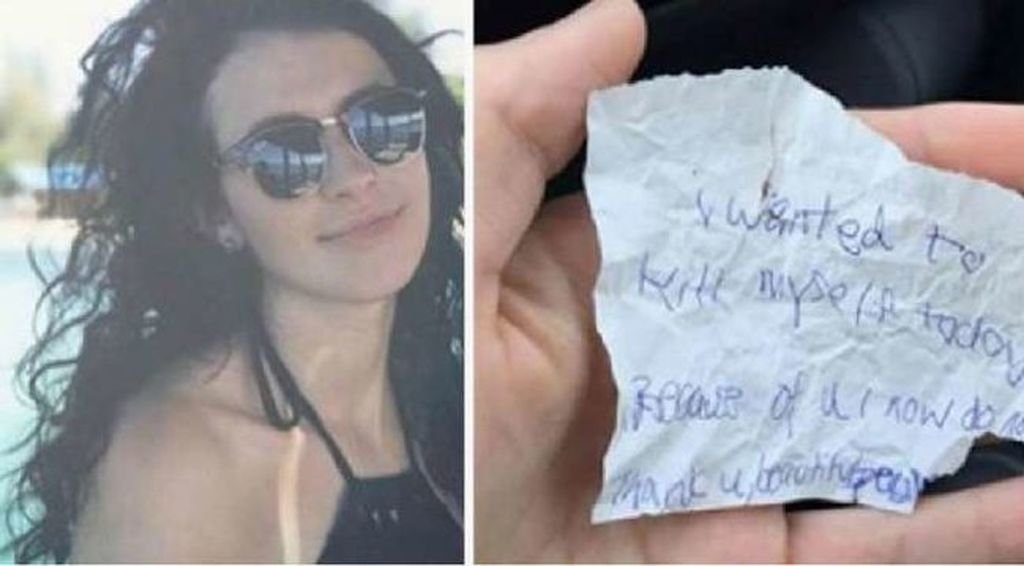 I wanted to
kill myself today
Because of u I now do no
Thank u, beautiful person